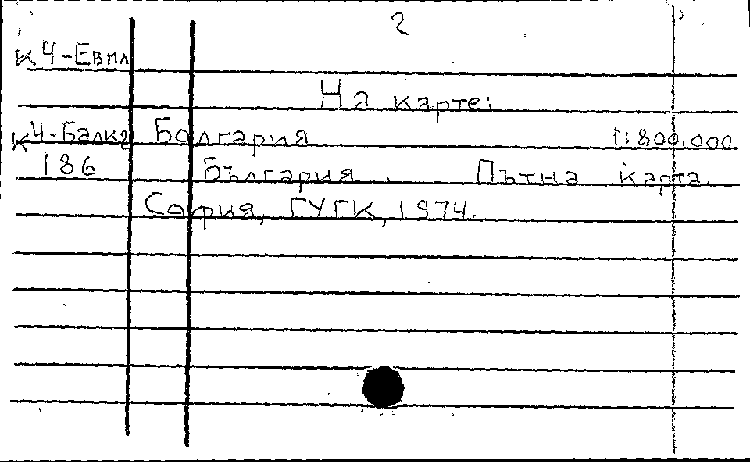 2
К4-Евил
На карте:
К4-Балка Болгария 1:800.000
186 България. Пътна карта.
София, ГУГК, 1974.